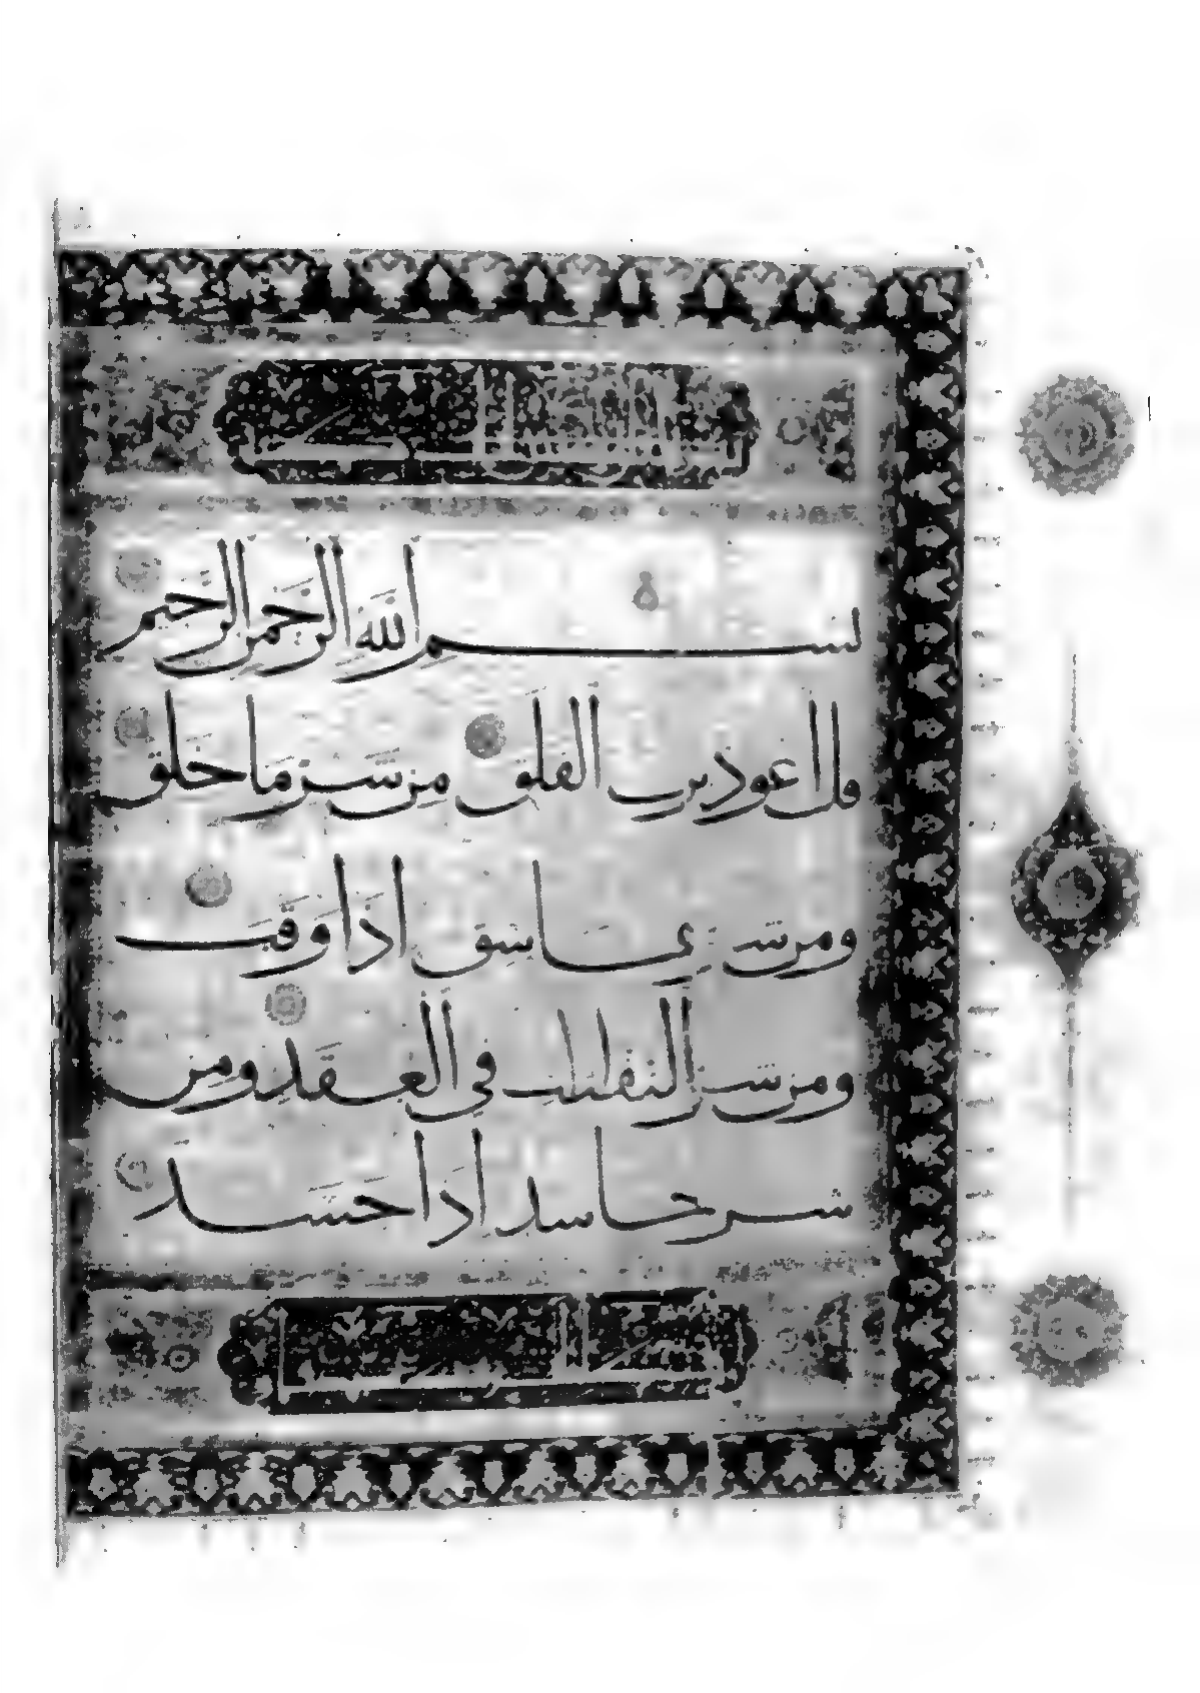 بسم الله الرحمن الرحيم
قل اعوذ برب الفلق من شر ما خلق
ومن شر غاسق اذا وقب
ومن شر النفثات في العقد ومن
شر حاسد اذا حسد